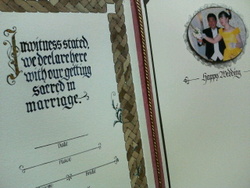 In witness stated,
we declare here
with our getting
sacred in
marriage.
Happy Wedding